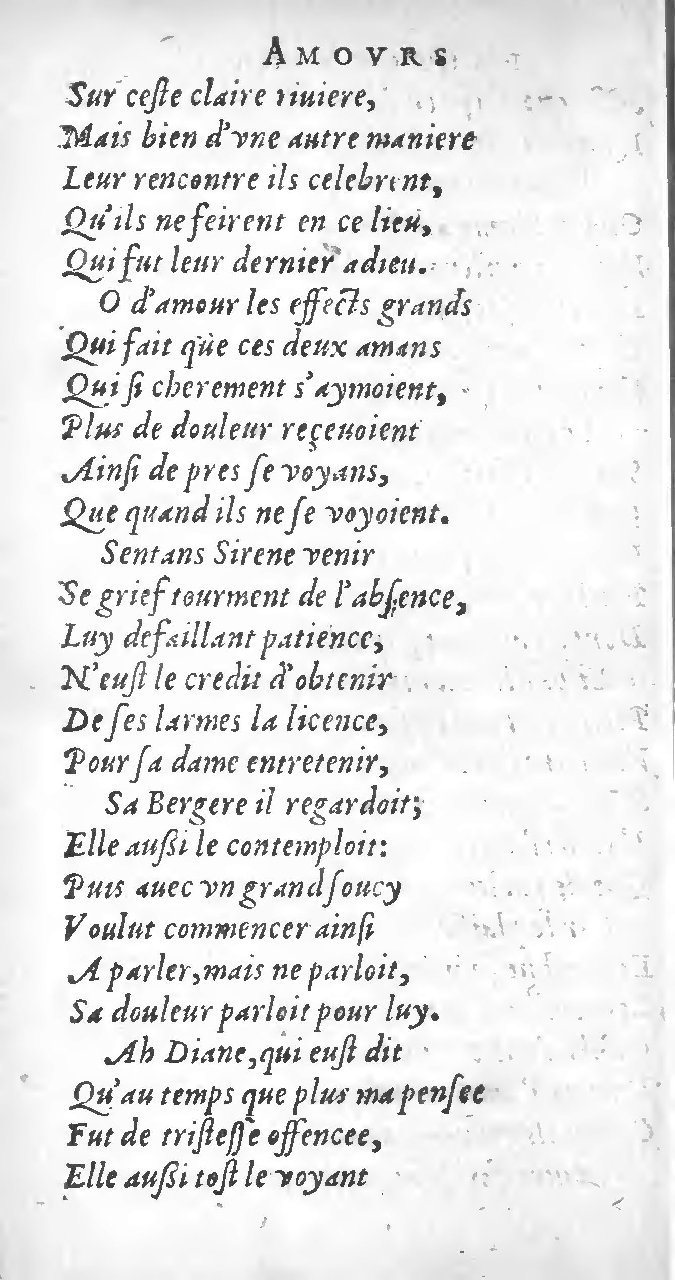 AMOVRS
Sur ceſte claire riuiere,
Mais bien d'vne autre maniere
Leur rencontre ils celebrent,
Qu'ils ne feirent en ce lieu,
Qui fut leur dernier adieu.
O d'amour les effects grands
Qui fait que ces deux amans
Qui ſi cherement s'aymoient,
Plus de douleur reçeuoient
Ainſi de pres ſe voyans,
Que quand ils ne ſe voyoient.
Sentans Sirene venir
Se grief tourment de l'abſence,
Luy defaillant patience,
N'euſt le credit d'obtenir
De ſes larmes la licence,
Pour ſa dame entretenir,
Sa Bergere il regardoit;
Elle auſſi le contemploit:
Puis auec vn grand ſoucy
Voulut commencer ainſi
A parler, mais ne parloit,
Sa douleur parloit pour luy.
Ah Diane, qui euſt dit
Qu'au temps que plus ma penſee
Fut de triſteſſe offencee,
Elle auſſi toſt le voyant